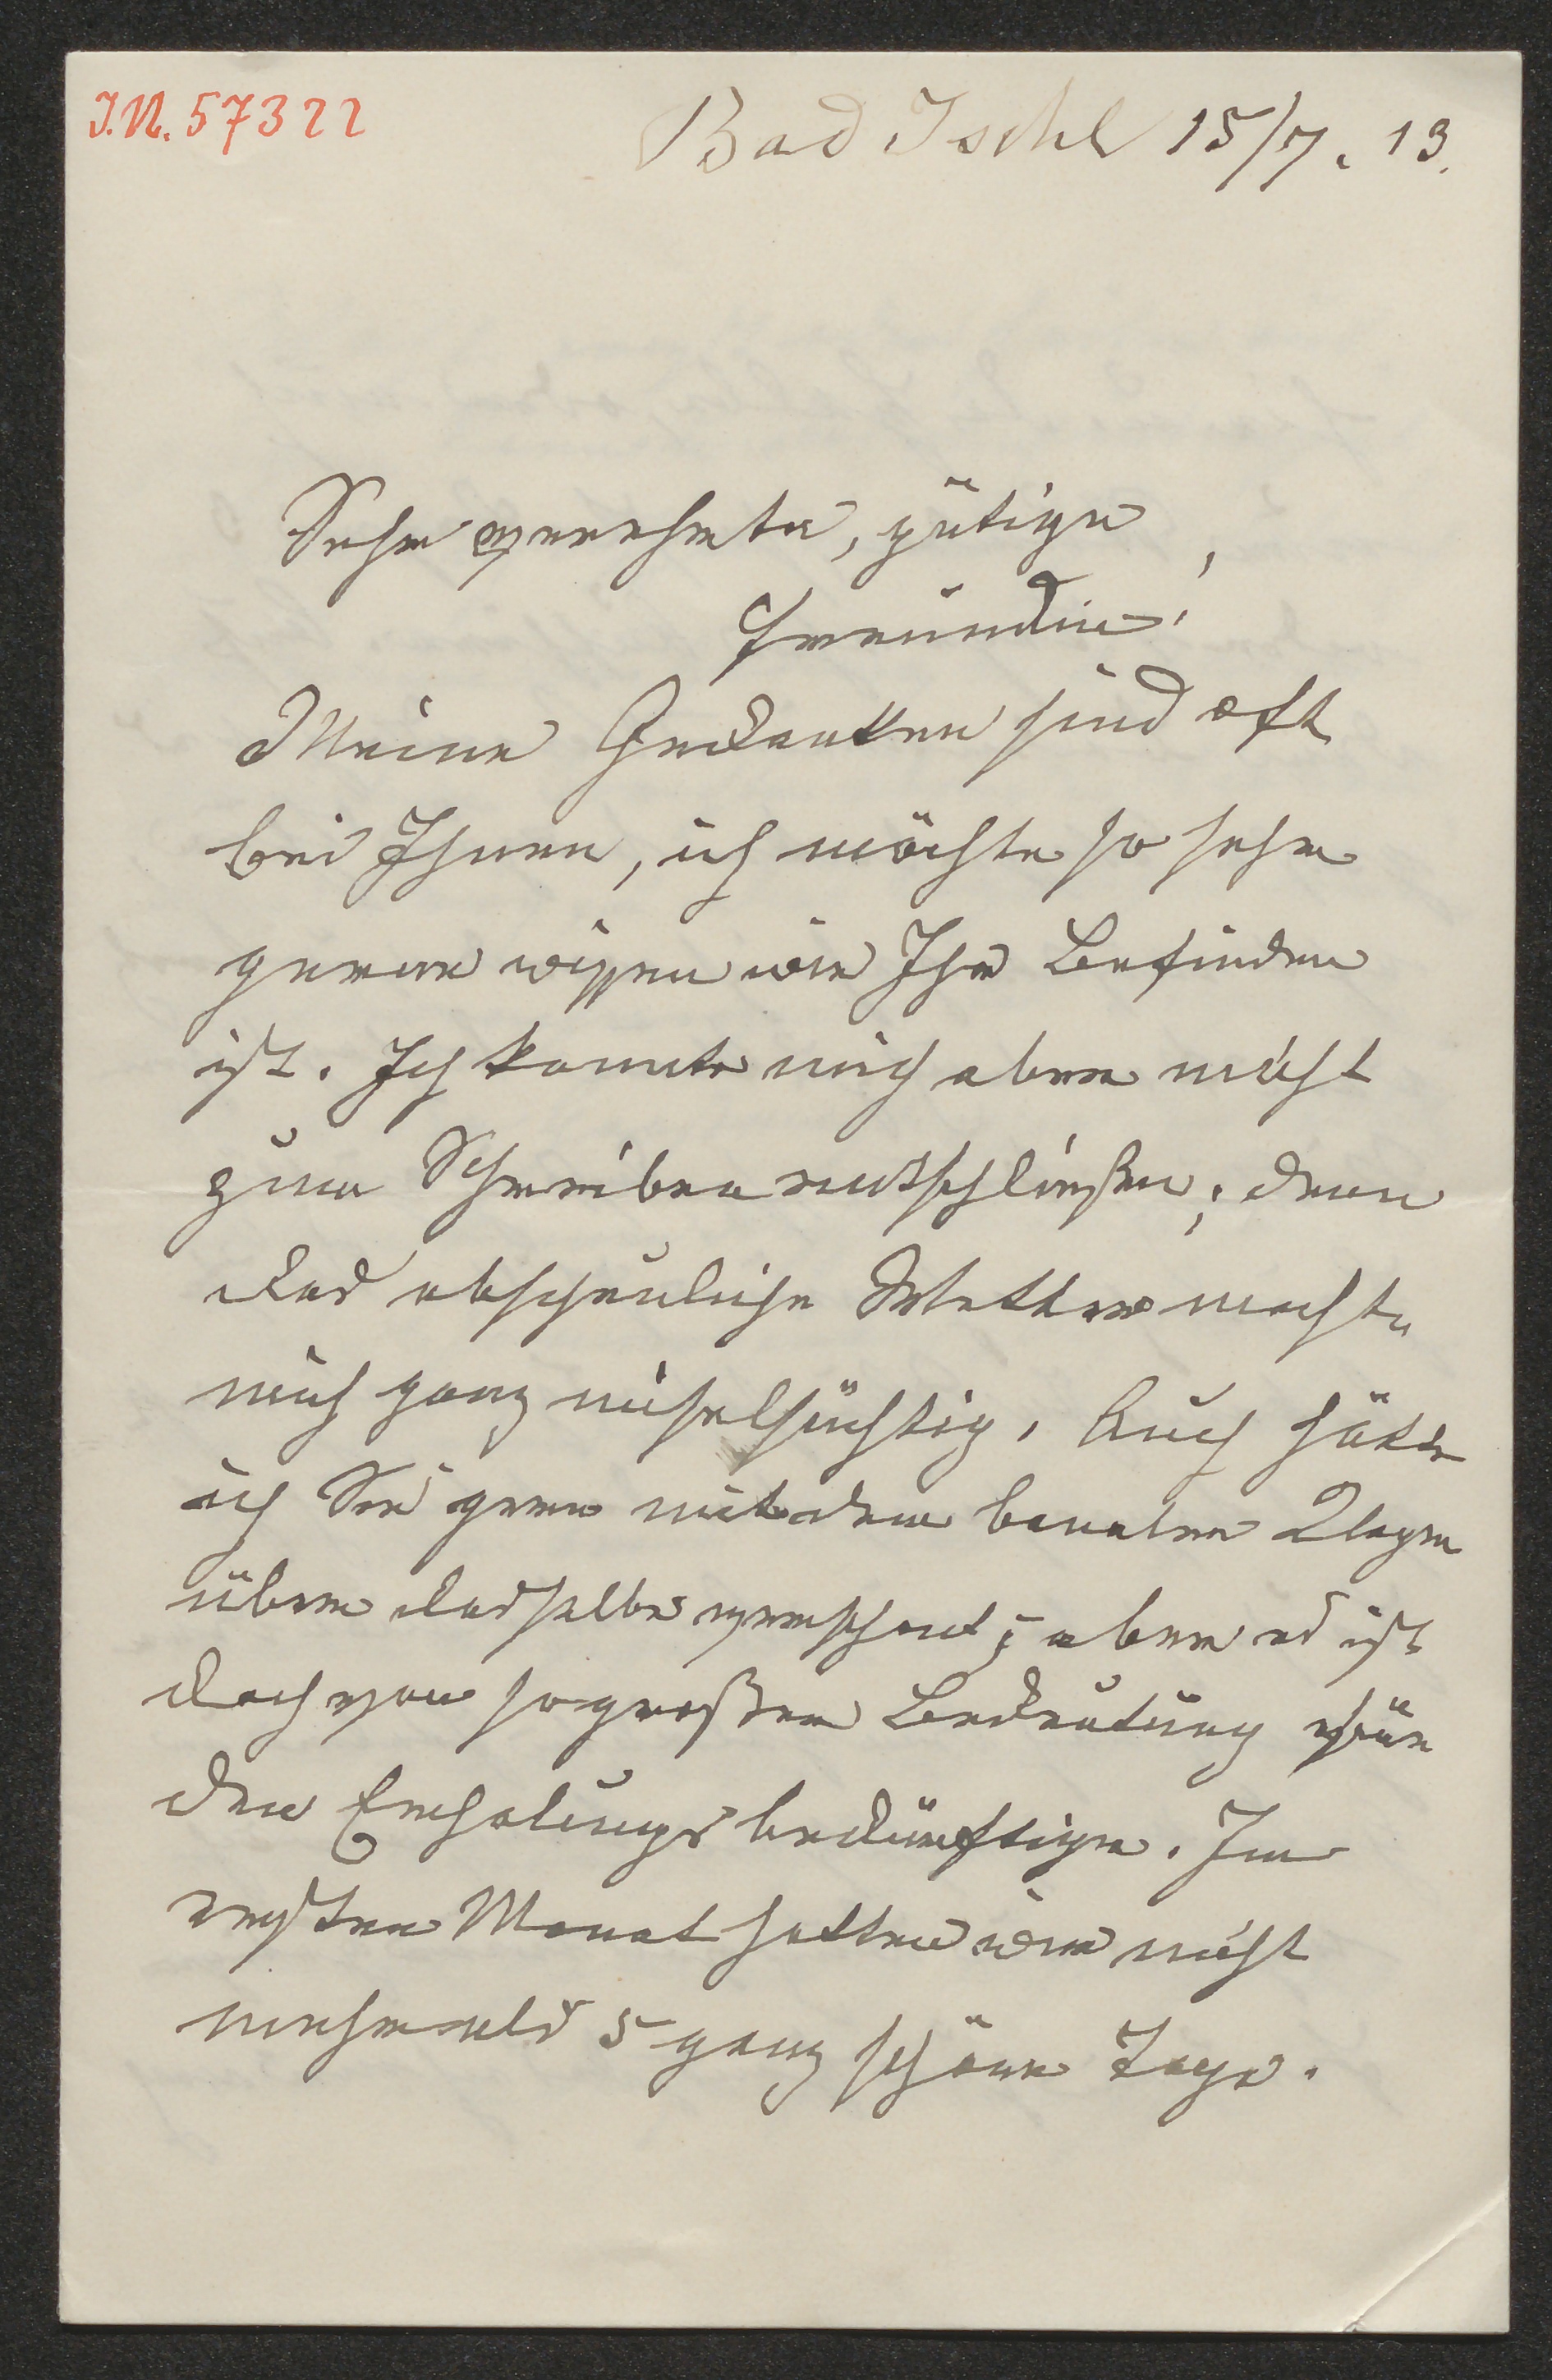 I.N. 57322
Bad Ischl 15/7. 13.
Sehr verehrte, gütige
Freundin!
Meine Gedanken sind oft
bei Ihnen, ich möchte so sehr
gerne wissen wie Ihr Befinden
ist. Ich konnte mich aber nicht
zum Schreiben entschließen; denn
das abscheuliche Wetter machte
mich ganz miselsüchtig. Auch hätte
ich Sie gern mit den banalen Klagen
über dasselbe verschont; aber es ist
doch von so großer Bedeutung für
den Erholungsbedürftigen. Im
ersten Monat hatten wir nicht
mehr als 5 ganz schöne Tage.